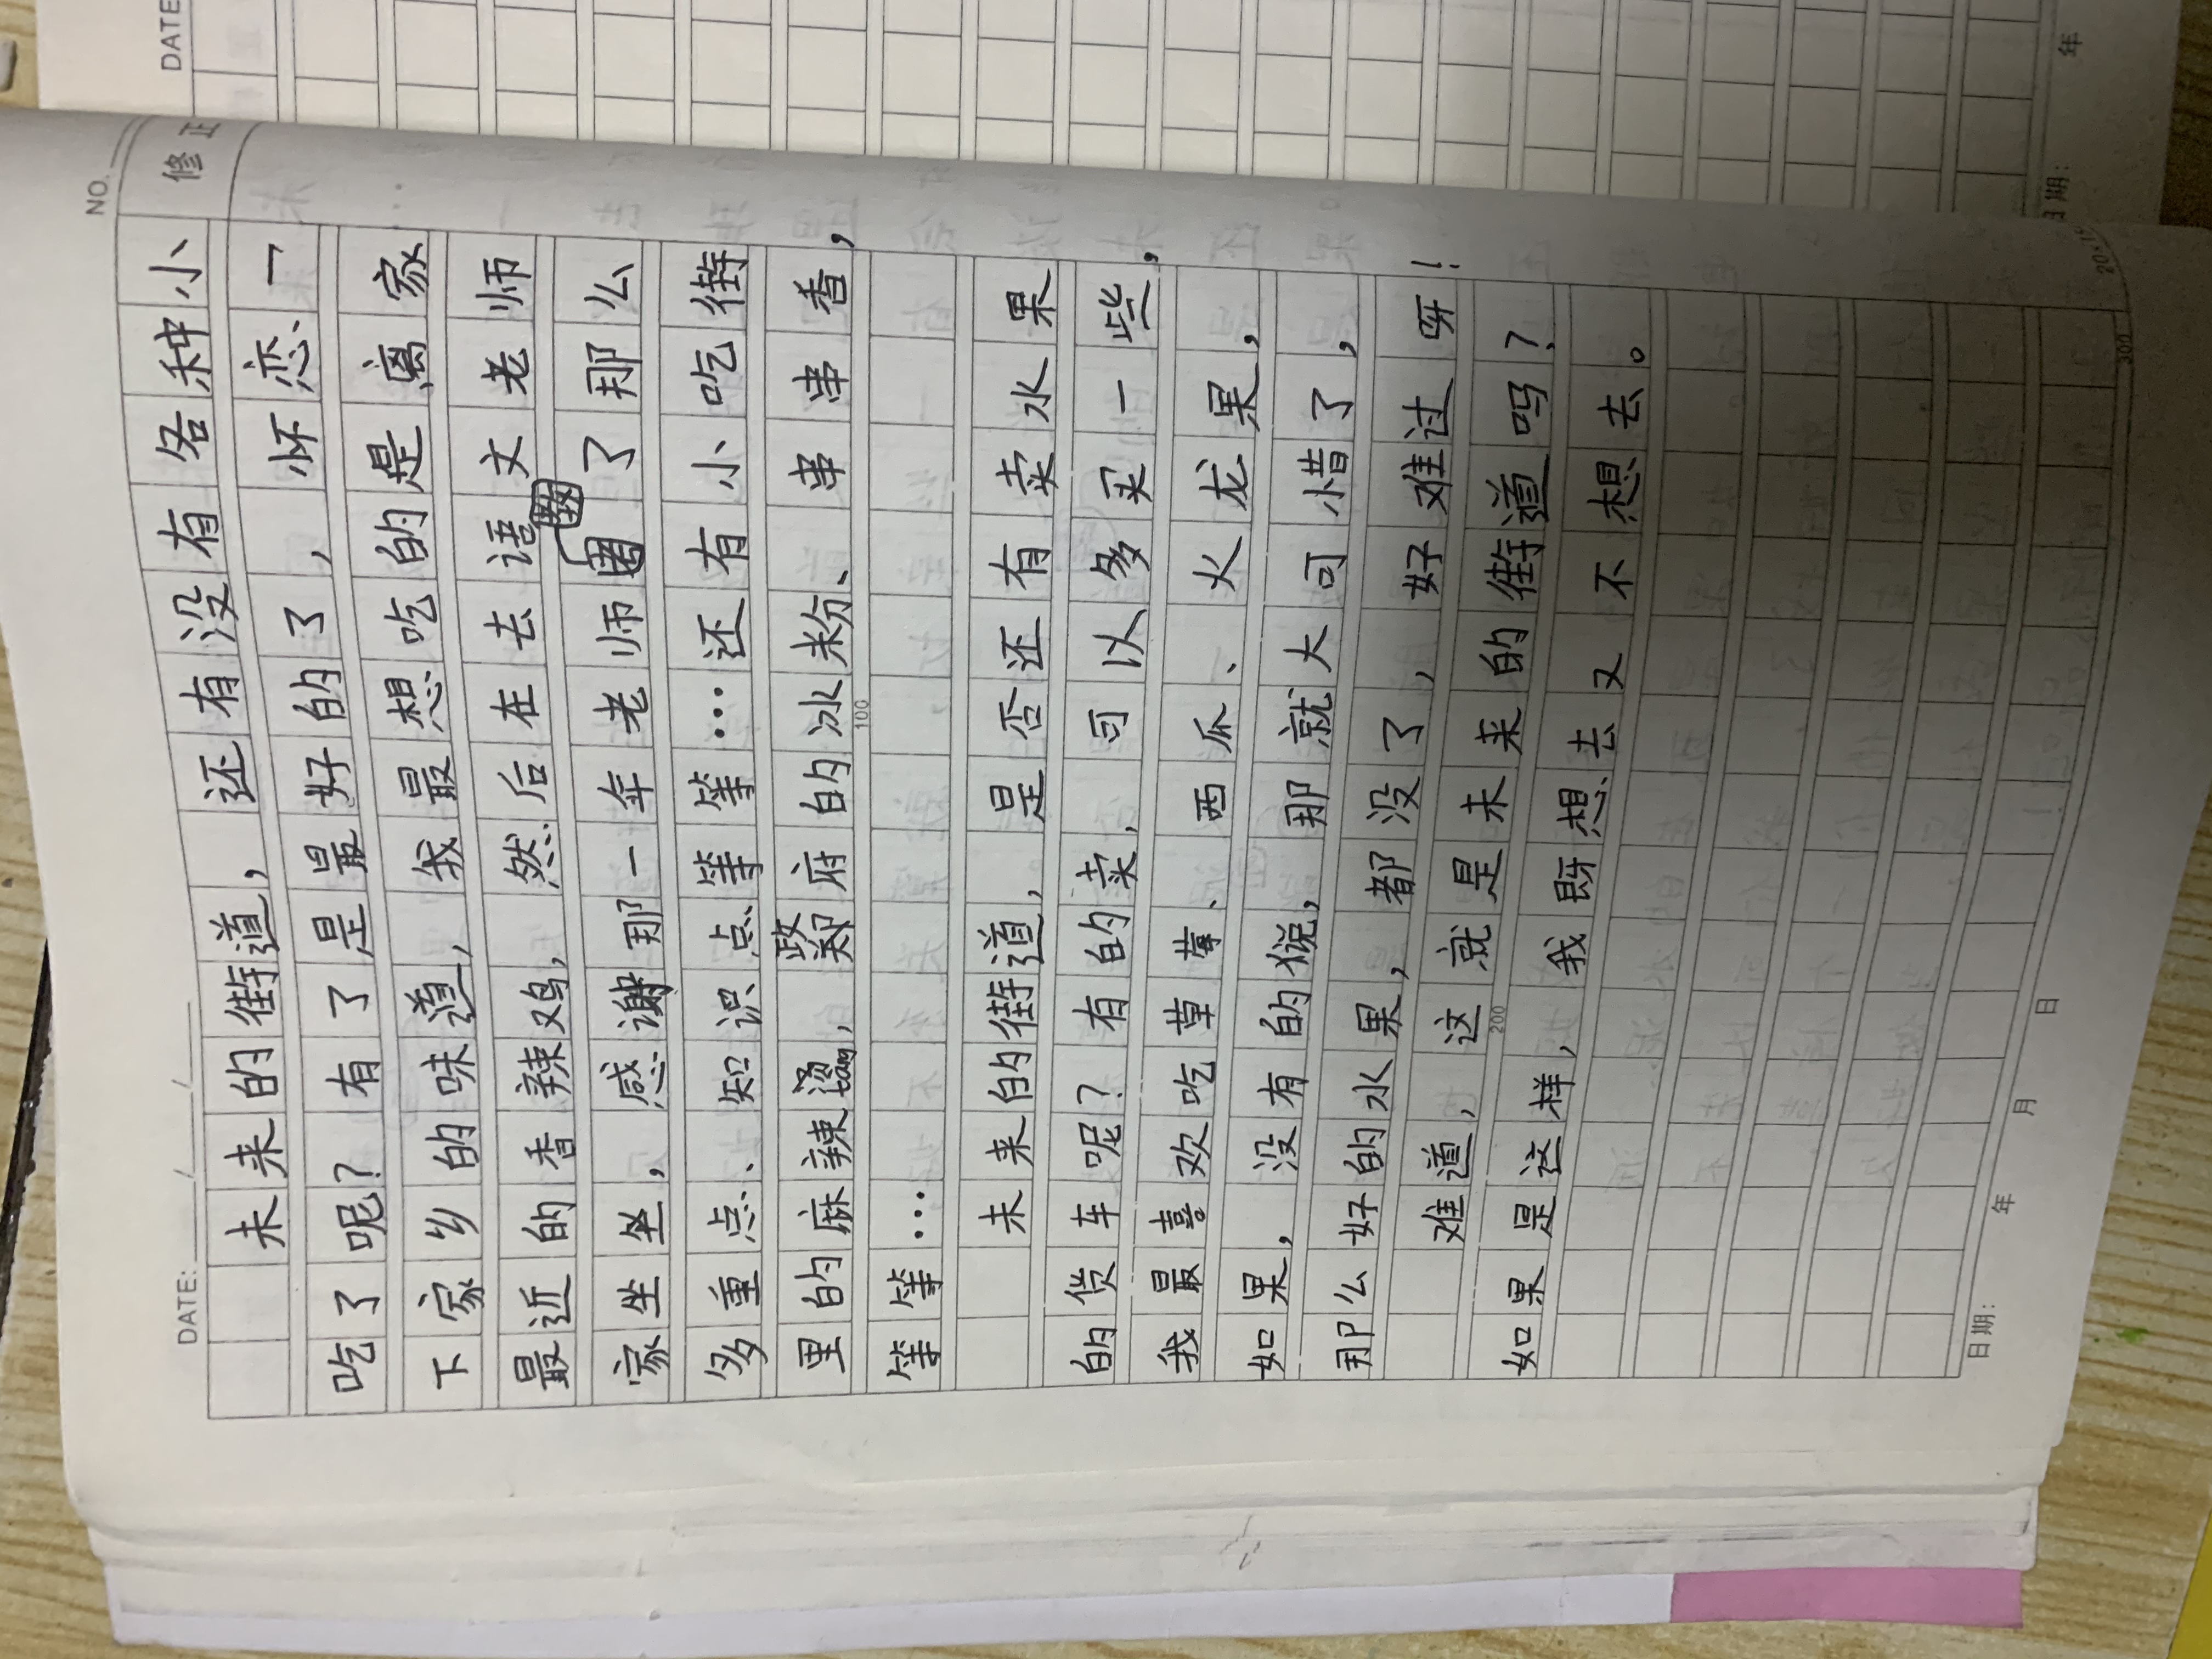 DATE: / /
NO.
修正
未来的街道，还有没有各种小
吃了呢？有了是最好的了，怀恋一
下家乡的味道，我最想吃的是离家
最近的香辣鸡，然后在去语文老师
家坐坐，感谢那一年老师教了那么
多重点、知识点等等…还有小吃街
里的麻辣烫，政府的冰粉、串串香，
等等…
100
未来的街道，是否还有卖水果
的货车呢？有的卖，可以多买一些，
我最喜欢吃草莓、西瓜、火龙果，
如果，没有的说，那就大可惜了，
那么好的水果，都没了，好难过呀！
难道，这就是未来的街道吗？
200
如果是这样，我既想去又不想去。
300
日期： 年 月 日
DATE
日期： 年